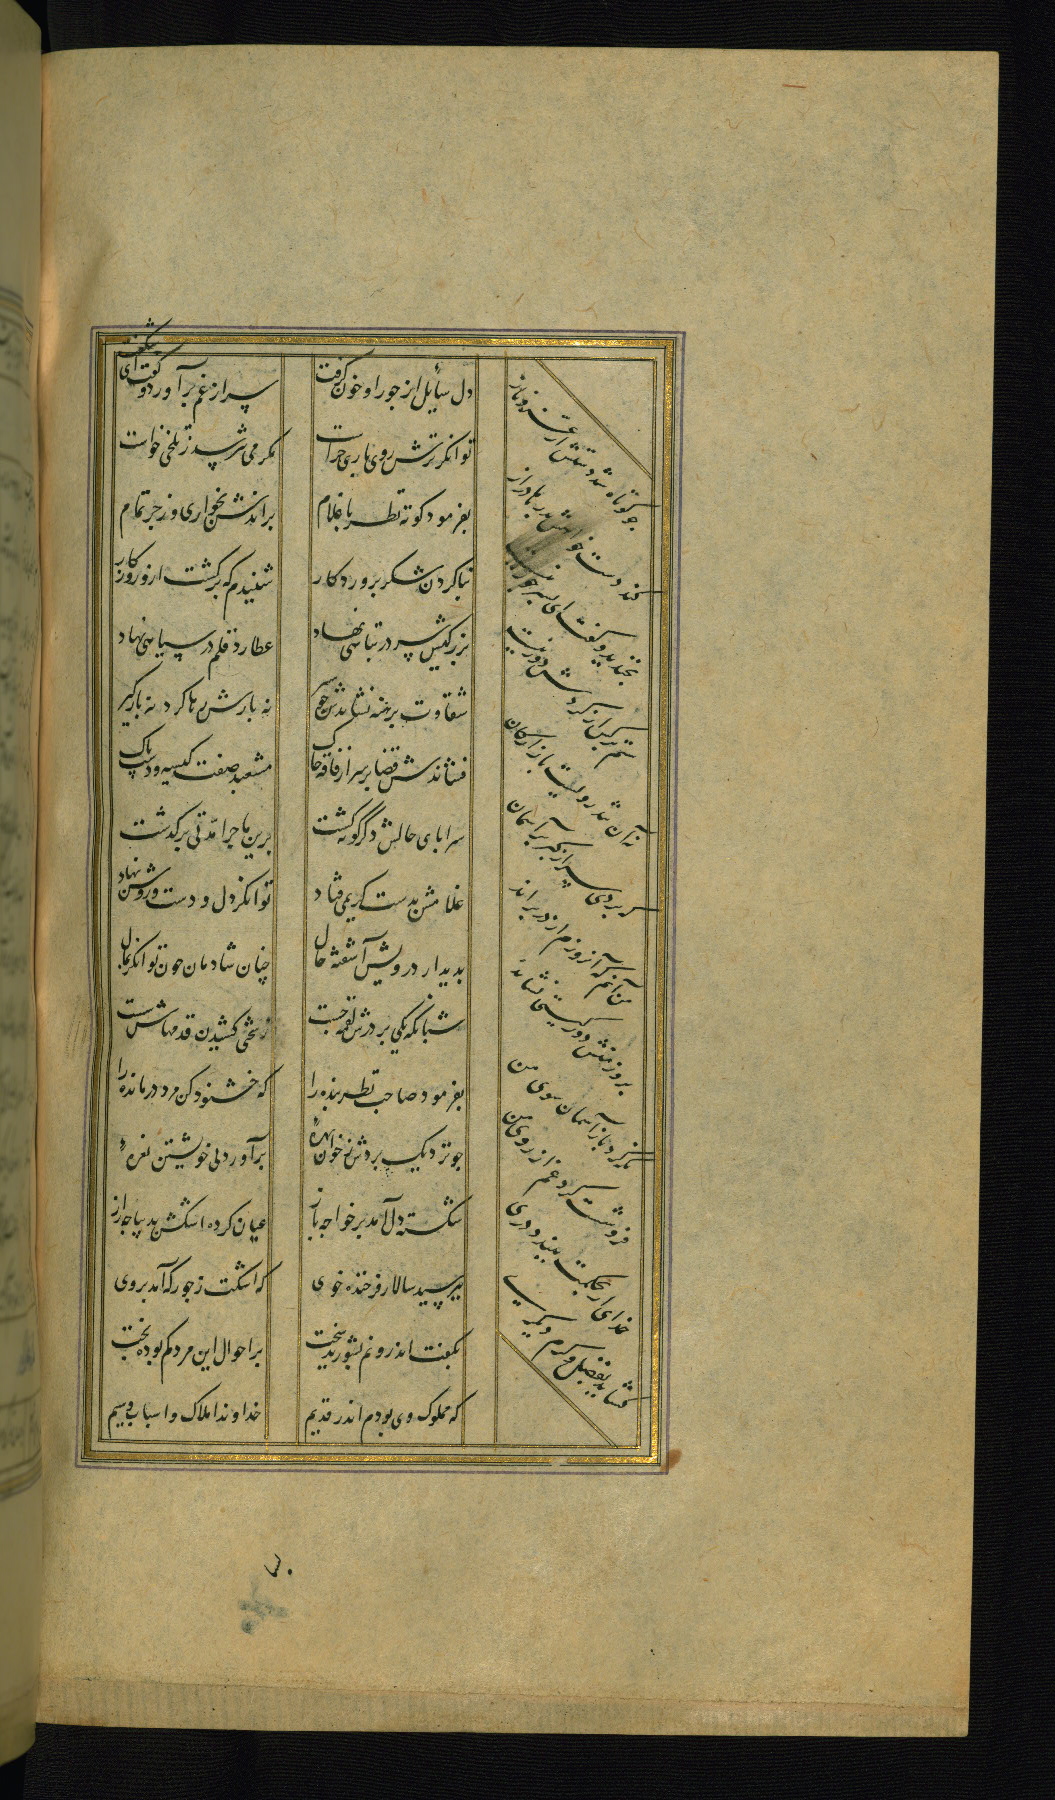 دل سایل از جور او خون گرفت
سر از غم برآورد و گفت ای شگفت
توانگر ترش روی باری چراست
مگر می نترسد ز تلخی خواست
بفرمود کوته نظر با غلام
براندش بخواری و زجر تمام
بنا کردن شکر پروردکار
شنیدم که برکشت ازو روزکار
بزرکیش سر در تباهی نهاد
عطارد قلم در سیاهی نهاد
شقاوت برهنه نشاندش چو سیر
نه بارش رها کرد نه بارگیر
فشاندش قضا بر سر از فاقه خاک
مشعبد صفت کیسه و دست پاک
سراپای حالش دگرگونه کشت
برین ماجرا مدتی برگذشت
غلامش بدست کریمی فتاد
توانکر دل و دست و روشن نهاد
بدیدار درویش آشفته حال
چنان شادمان بودی که توانگر بمال
شبانگه یکی بر درش لقمه جست
ز سختی کشیدن قدمهاش سست
بفرمود صاحب نظر بنده را
که خشنود کن مرد درمانده را
چو نزدیک بردش ز خوان بهرهٔ
برآورد بی خویشتن نعرهٔ
شکسته دل آمد بر خواجه باز
عیان کرده اشکش بدیباجه راز
بپرسید سالار فرخنده خوی
که اشکت ز جور که آمد بروی
بگفت اندرونم بشورید سخت
بر احوال این مرد کم بوده بخت
که مملوک وی بودم اندر قدیم
خداوند املاک و اسباب و سیم
چو کوتاه شد دستش از عز و ناز
کند دست خواهش بدرها دراز
بخندید و گفت ای پسر جور نیست
ستم بر کس از گردش دور نیست
نه آن تندرویست بازارگان
که بردی سر از کبر بر آسمان
من آنم که آن روزم از در براند
بروز منش دور گیتی نشاند
نگه کرد باز آسمان سوی من
فرو شست گرد غم از روی من
خدای ار بحکمت ببندد دری
گشاید بفضل و کرم دیگری